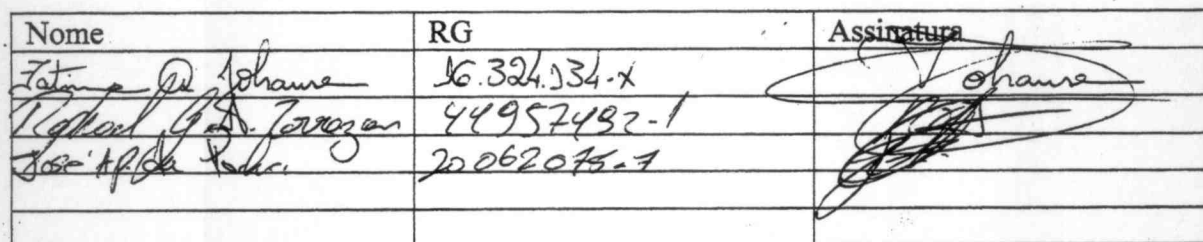 Nome RG Assinatura
Fatima Johanse 16.324.134-x Johanse
Rafael G. A. Torrezan 44957492-1
José Ap. da Rocha. 20062075-7